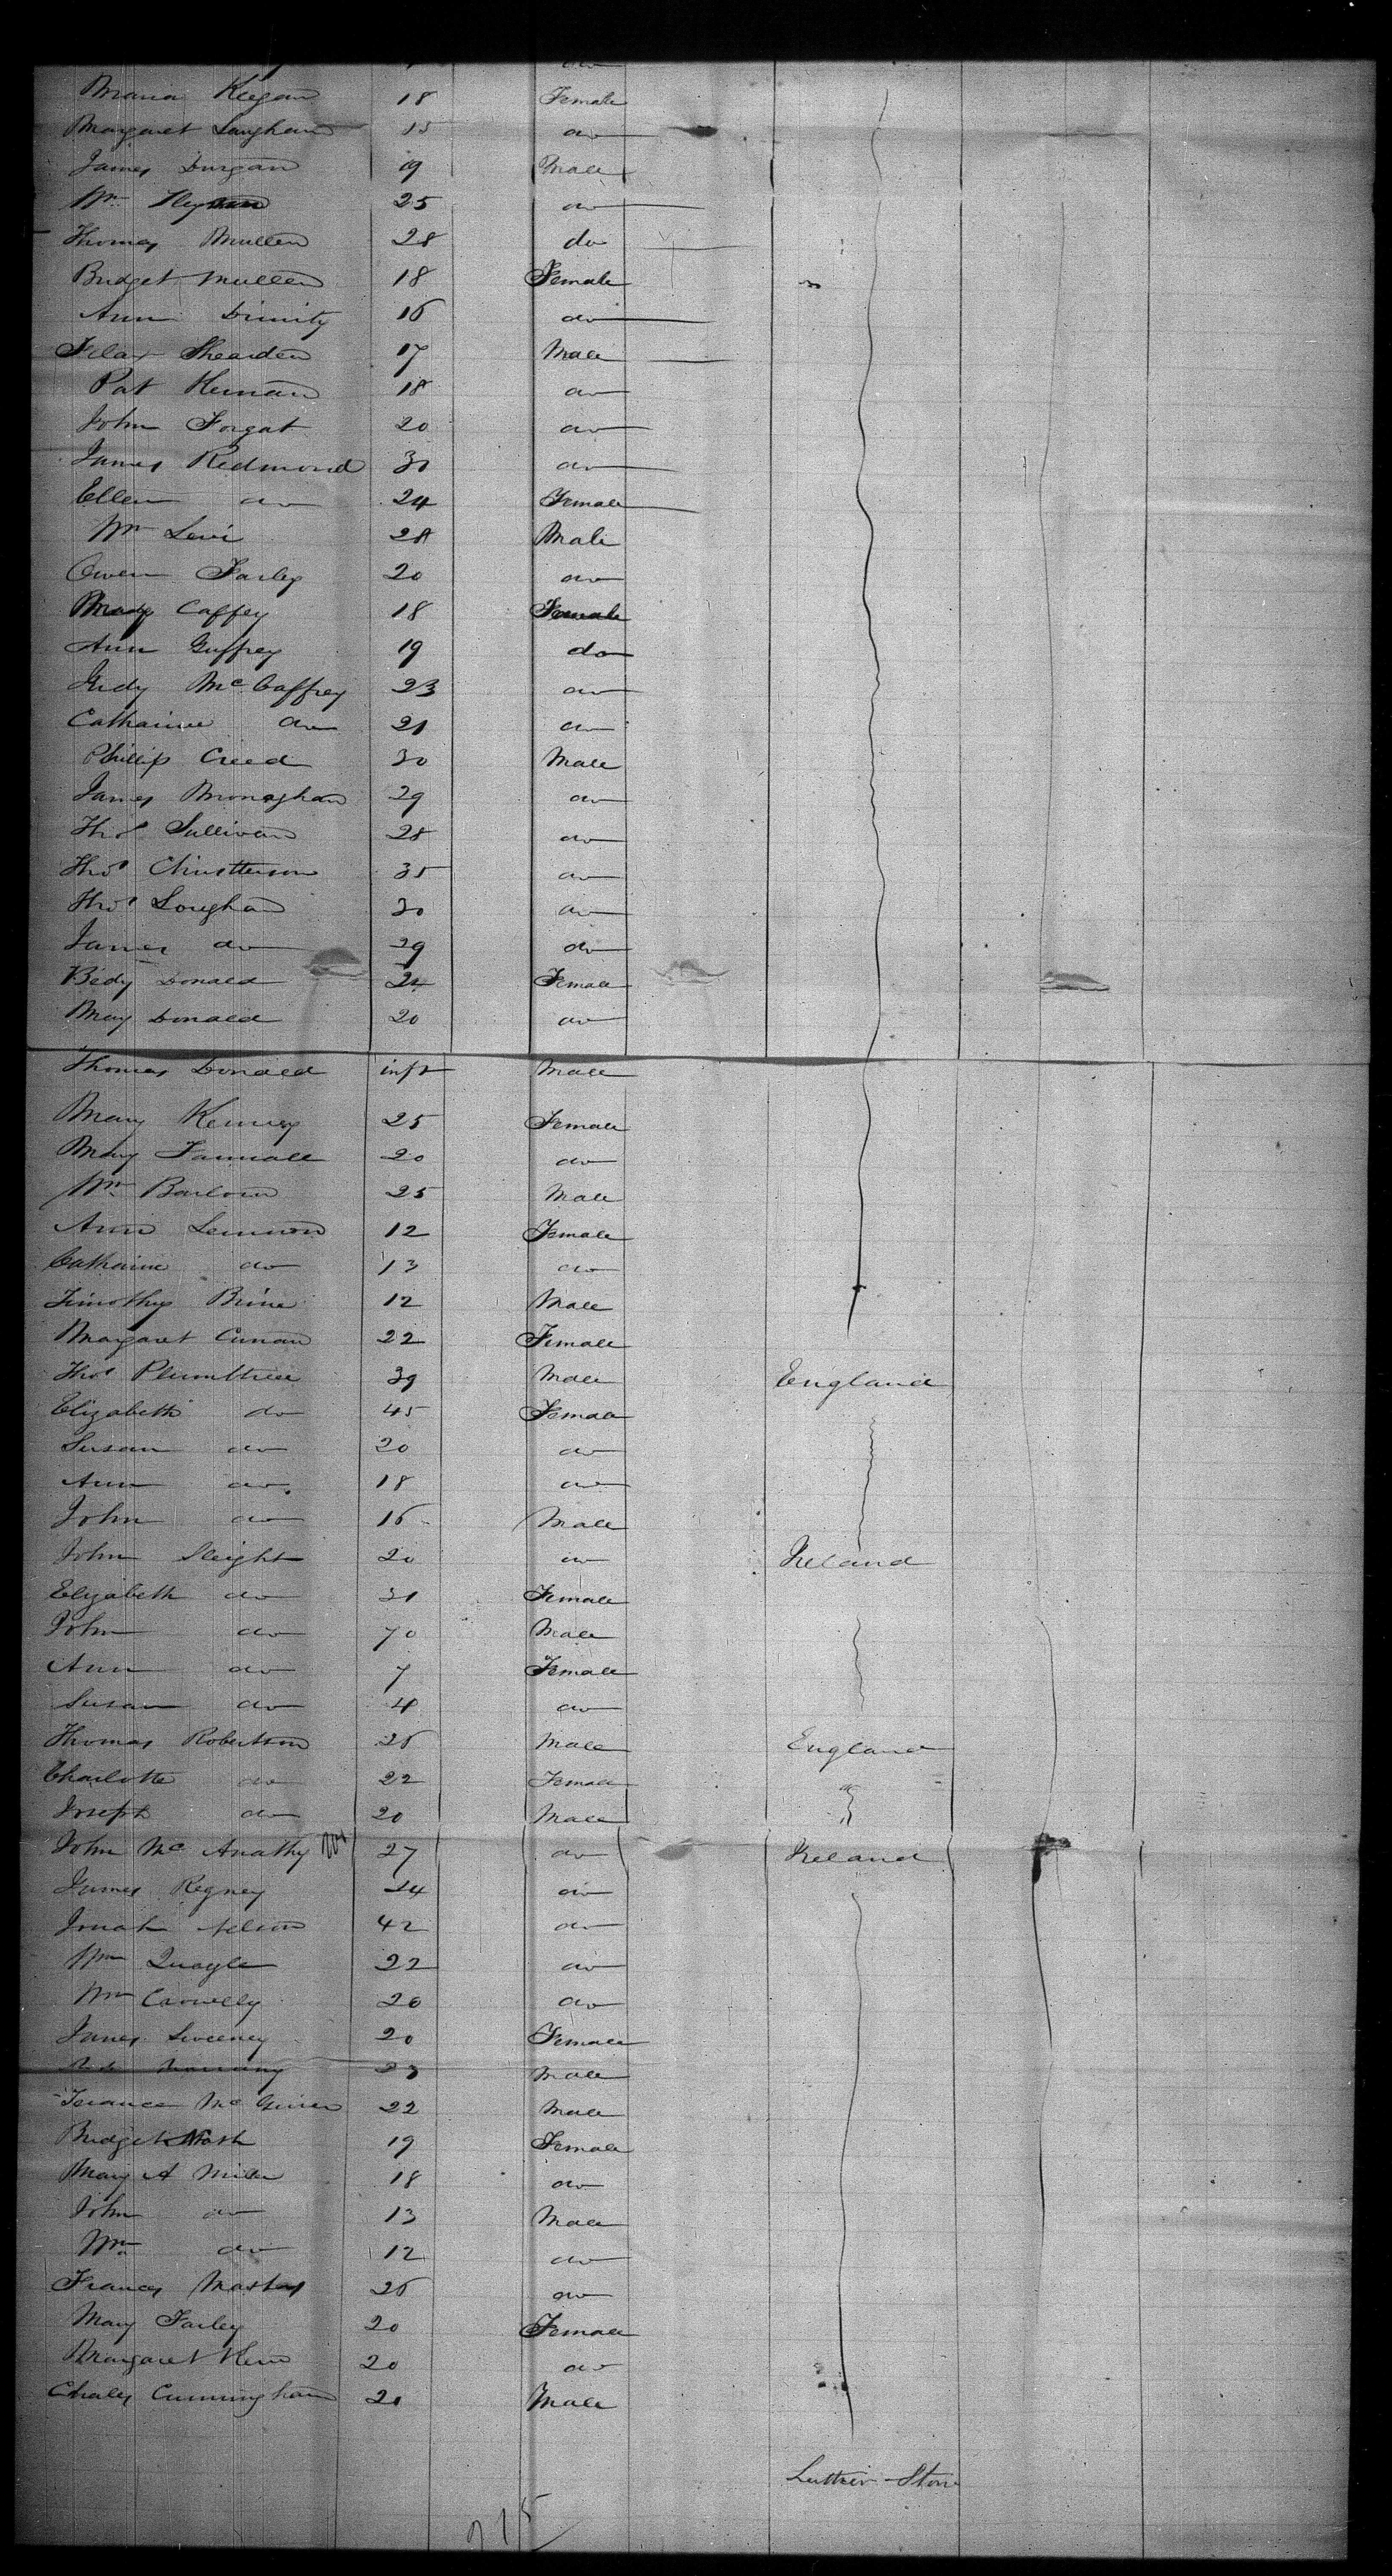 Maria Keegan 18 Female
Margaret Langhan 15 do
James Durgan 19 Male
Wm 25 do
Thomas Mullen 28 do
Bridget Mullen 18 Female
Ann Dinnity 16 do
Felax Shearden 17 Male
Pat Kernan 18 do
John Forgat 20 do
James Redmond 30 do
Ellen do 24 Female
Wm Levi 28 Male
Owen Farley 20 do
Mary Caffey 18 Female
Ann Guffrey 19 do
Judy McCaffrey 23 do
Catharine do 21 do
Phillip Creed 30 Male
James Monaghan 29 do
Thos Sullivan 28 do
Thos Christterson 35 do
Thos Loughan 30 do
James do 29 do
Bedy Donald 24 Female
Mary Donald 20 do
Thomas Donald inft Male
Mary Kenney 25 Female
Mary Fannall 20 do
Wm Barlow 25 Male
Ann Lennon 12 Female
Catharine do 13 do
Timothy Brine 12 Male
Margaret Curnan 22 Female
Thos Plumbtree 39 Male England
Elizabeth do 45 Female
Susan do 20 do
Ann do 18 do
John do 16 Male
John Sleight 20 do Ireland
Elizabeth do 31 Female
John do 70 Male
Ann do 7 Female
Susan do 4 do
Thomas Robertson 26 Male England
Charlotte do 22 Female
Joseph do 20 Male
John Mc Anathy 27 do Ireland
James Regney 24 do
Jonah Nelson 42 do
Wm Quayle 22 do
Wm Connelly 20 do
James Sweeney 20 Female
23 Male
Terance Mc Guiver 22 Male
Bridget Nash 19 Female
Mary A Miller 18 do
John do 13 Male
Wm do 12 do
Francy Masters 26 do
Mary Farley 20 Female
Margaret Kern 20 do
Chaley Cunningham 20 Male
Luther Stone
215